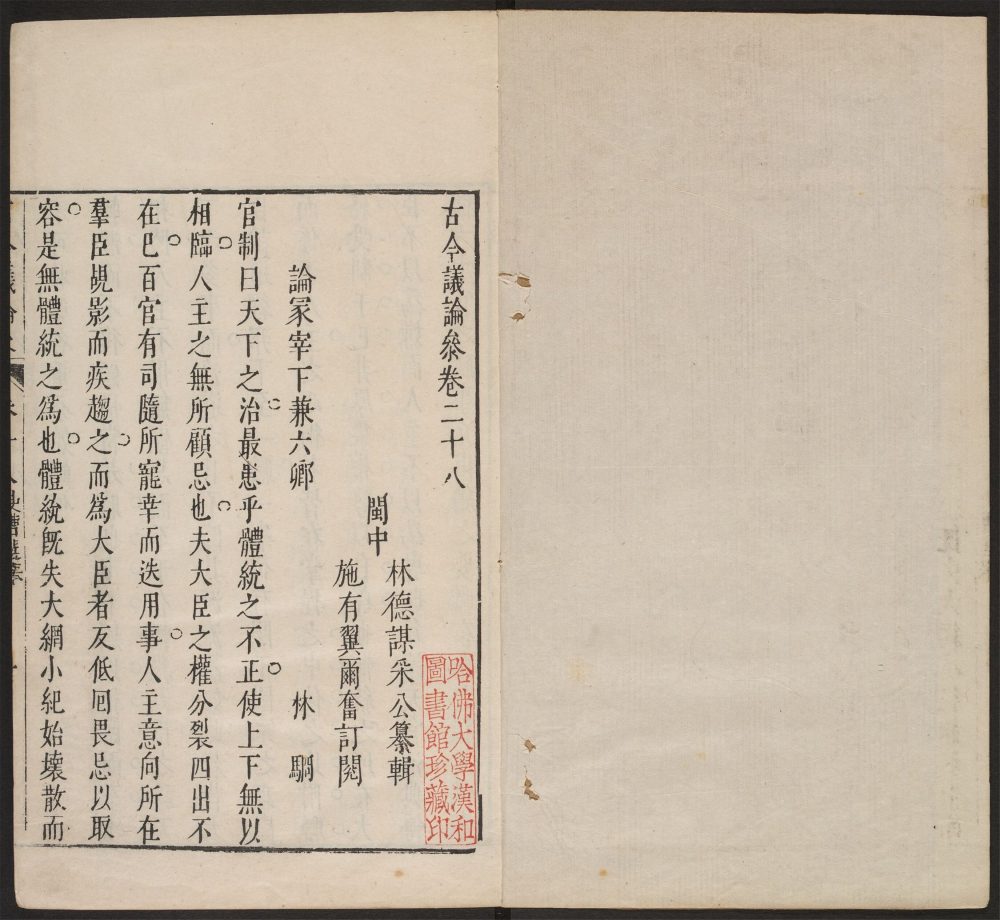 古今議論叅卷二十八
閩中
林德謀采公纂輯
施有翼爾奮訂閱
論冢宰下兼六卿
林駉
官制曰天下之治最患乎體統之不正使上下無以
相臨人主之無所顧忌也夫大臣之權分裂四出不
在已百官有司隨所寵幸而迭用事人主意向所在
羣臣覘影而疾趨之而爲大臣者反低回畏忌以取
容是無體統之爲也體統旣失大綱小紀始壞散而
哈佛大學漢和
圖書館珍藏印